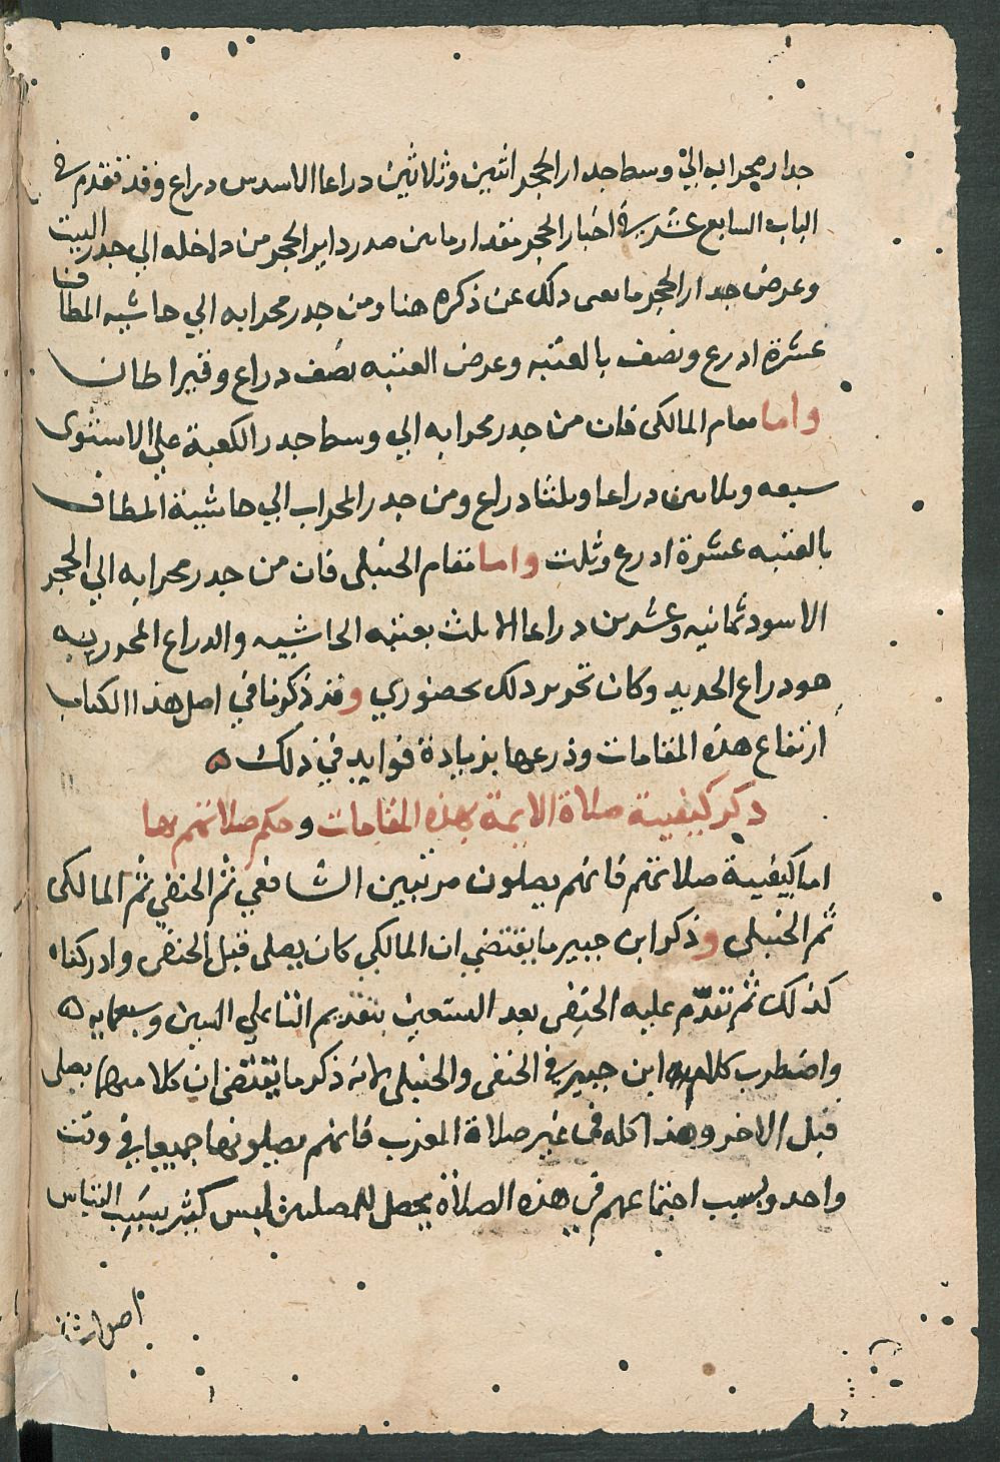 جدار محرابه الي وسط جدار الحجر اثنين وثلاثين دراعا الاسدس دراع وقد تقدم في
الباب السابع عشر في اخبار الحجر مقدار مابين صدر داير الحجر من داخله الي جدر البيت
وعرض جدار الحجر مايغني دلك عن ذكره هنا ومن جدر محرابه الي حاشيه المطاف
عشرة ادرع ونصف بالعتبه وعرض العتبه نصف دراع وقيراطان
واما مقام المالكي فان من جدر محرابه الي وسط جدر الكعبة علي الاستوى
سبعه وثلاثين دراعا وثلثا دراع ومن جدر المحراب الي حاشية المطاف
بالعتبه عشرة ادرع وثلث واما مقام الحنبلي فان من جدر محرابه الي الحجر
الاسود ثمانيه وعشرين دراعا الا ثلث بعتبه الحاشيه والدراع المحرر به
هو دراع الحديد وكان تحرير دلك بحضوري وقد ذكرنا في اصل هذا الكتاب
ارتفاع هذه المقامات وذرعها بزيادة فوايد في ذلك ه
دكر كيفية صلاة الايمة بهذه المقامات وحكم صلاتهم بها
اما كيفية صلاتهم فانهم يصلون مرتبين الشافعي ثم الحنفي ثم المالكي
ثم الحنبلي وذكر ابن جبير ما يقتضي ان المالكي كان يصلي قبل الحنفي وادركناه
كذلك ثم تقدّم عليه الحنفي بعد التسعين بتقديم التا علي السين وسبعمايه ه
واضطرب كلام ابن جبير في الحنفي والحنبلي لانه ذكر ما يقتضي ان كلا منهما يصلي
قبل الاخر وهذا كله في غير صلاة المغرب فانهم يصلونها جميعا في وقت
واحد وبسبب اجتماعهم في هذه الصلاة يحصل للمصلين لبس كثير بسبب التباس
اصوات